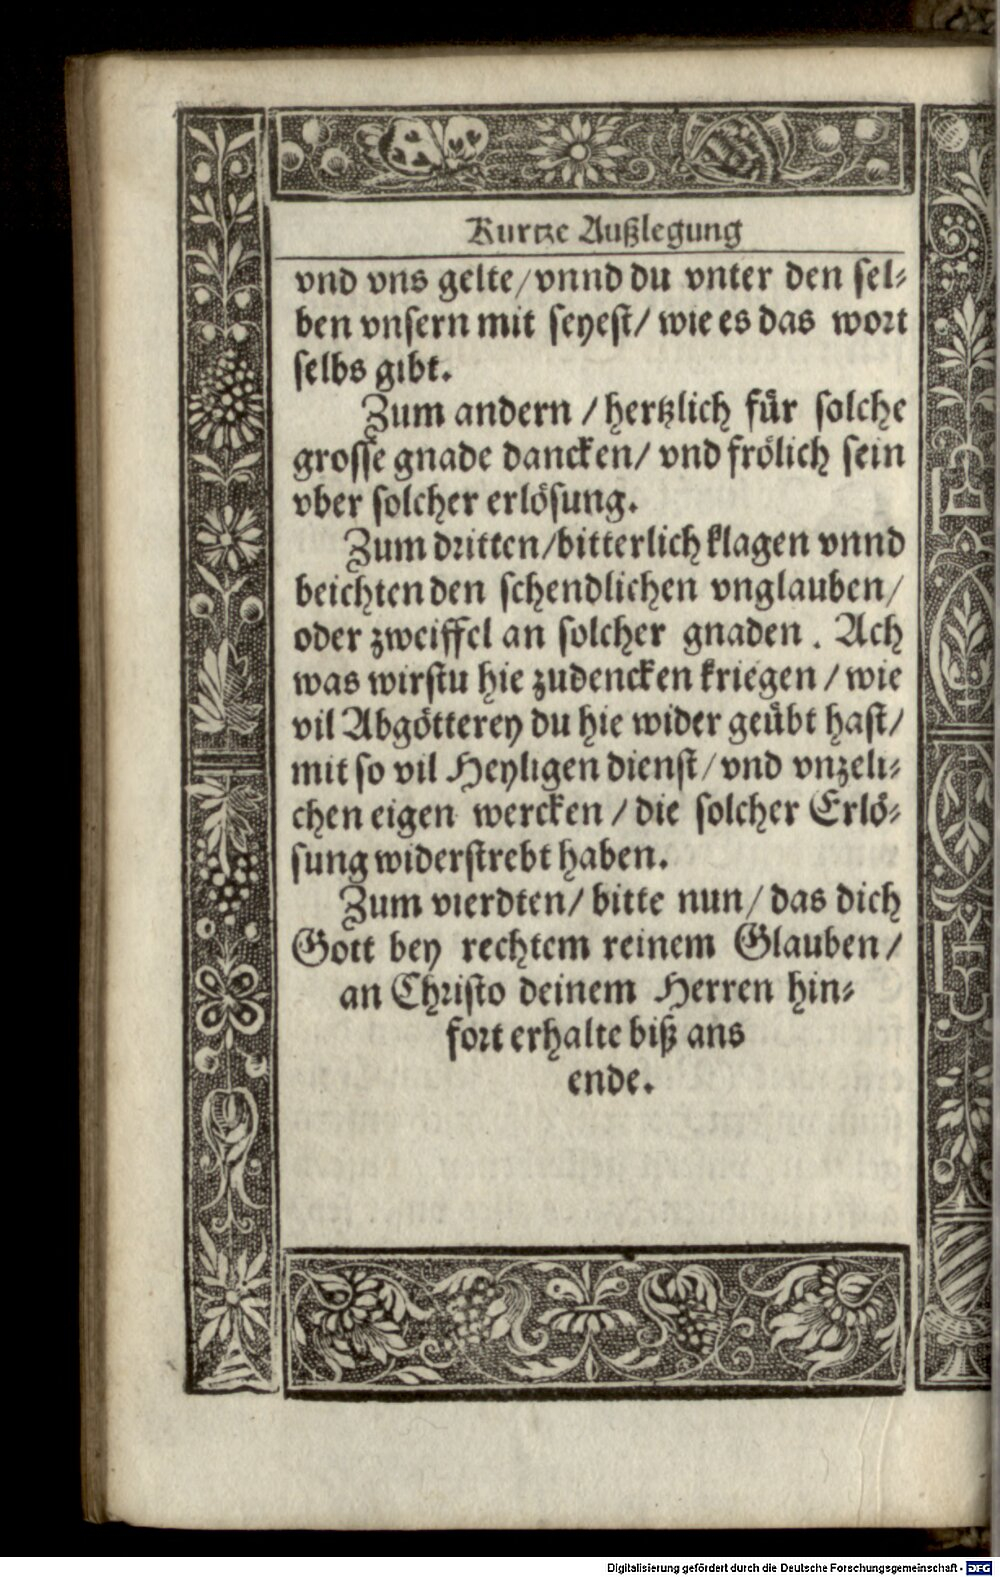 Kurtze Außlegung
vnd vns gelte/vnnd du vnter den sel⸗
ben vnsern mit seyest/ wie es das wort
selbs gibt.
Zum andern / hertzlich für solche
grosse gnade dancken/ vnd frölich sein
vber solcher erlösung.
Zum dritten/bitterlich klagen vnnd
beichten den schendlichen vnglauben/
oder zweiffel an solcher gnaden. Ach
was wirstu hie zudencken kriegen / wie
vil Abgötterey du hie wider geübt hast/
mit so vil Heyligen dienst/ vnd vnzeli⸗
chen eigen wercken / die solcher Erlö⸗
sung widerstrebt haben.
Zum vierdten/ bitte nun/ das dich
Gott bey rechtem reinem Glauben/
an Christo deinem Herren hin⸗
fort erhalte biß ans
ende.
Digitalisierung gefördert durch die Deutsche Forschungsgemeinschaft - DFG